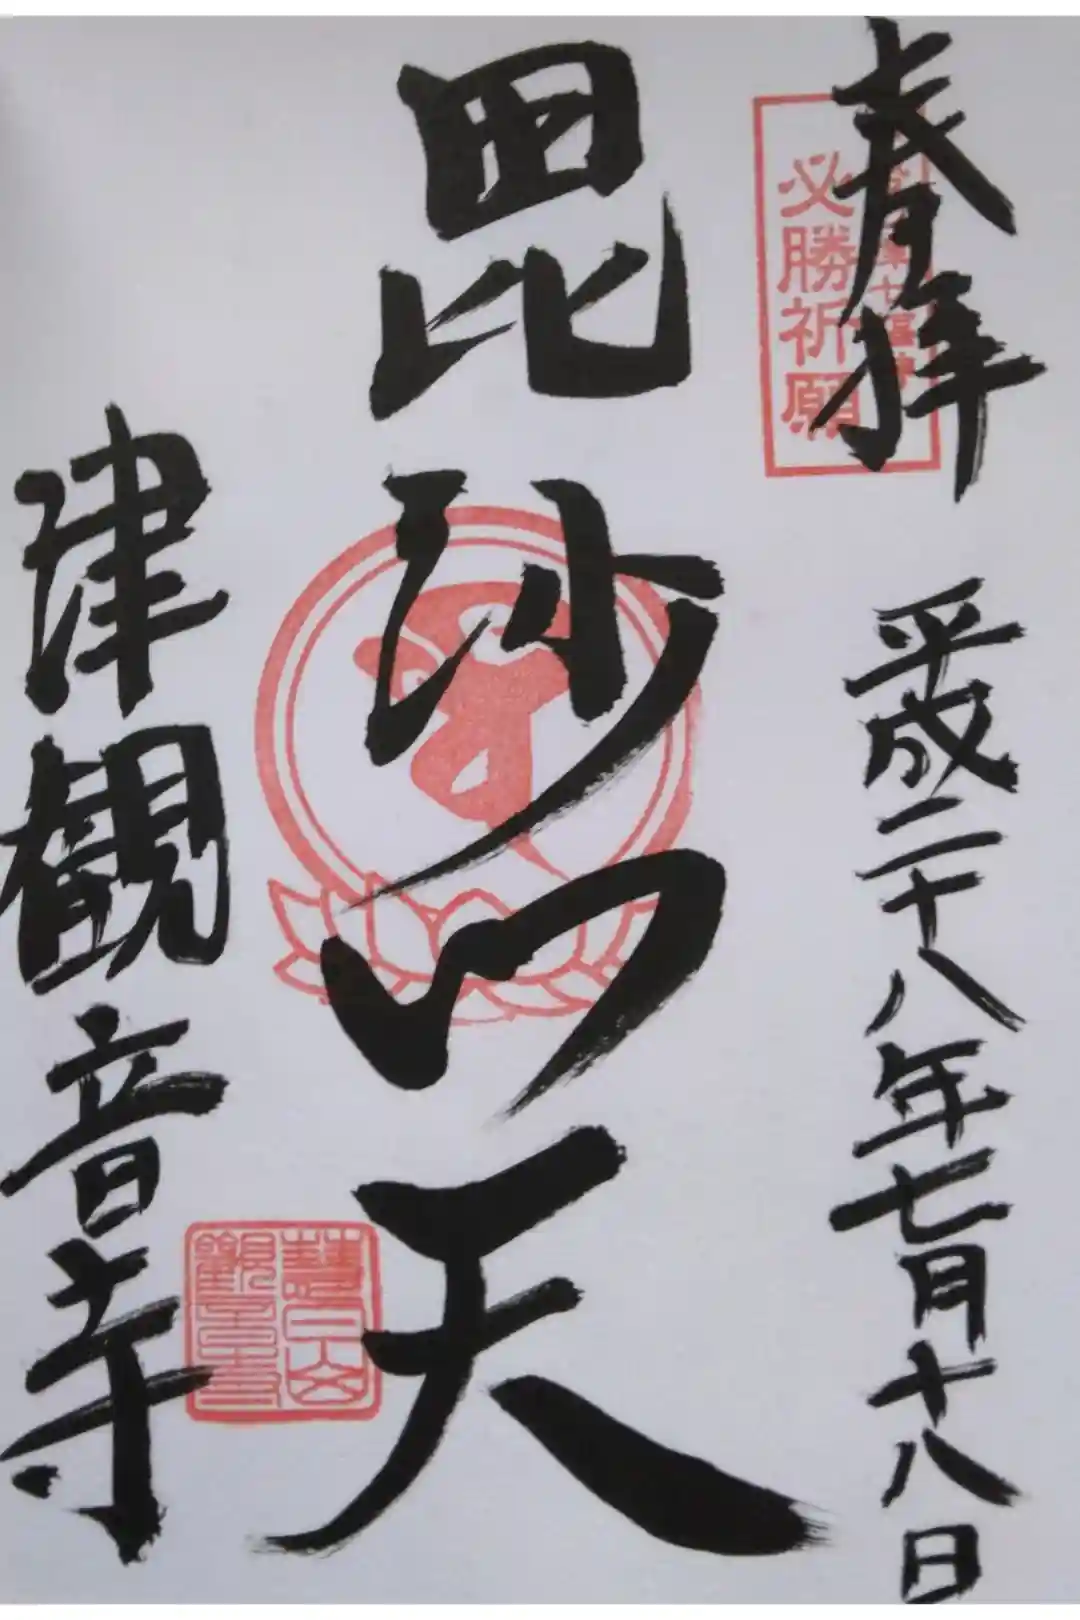 奉拝
平成二十八年七月十八日
必勝祈願
毘沙門天
津観音寺